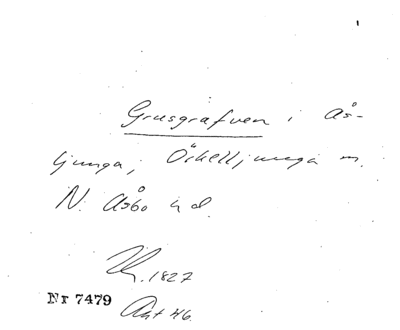 Grusgrafven i Ås-
ljunga, Örkelljunga m.
N. Åsbo hd.
1827
Nr 7479
Akt 46